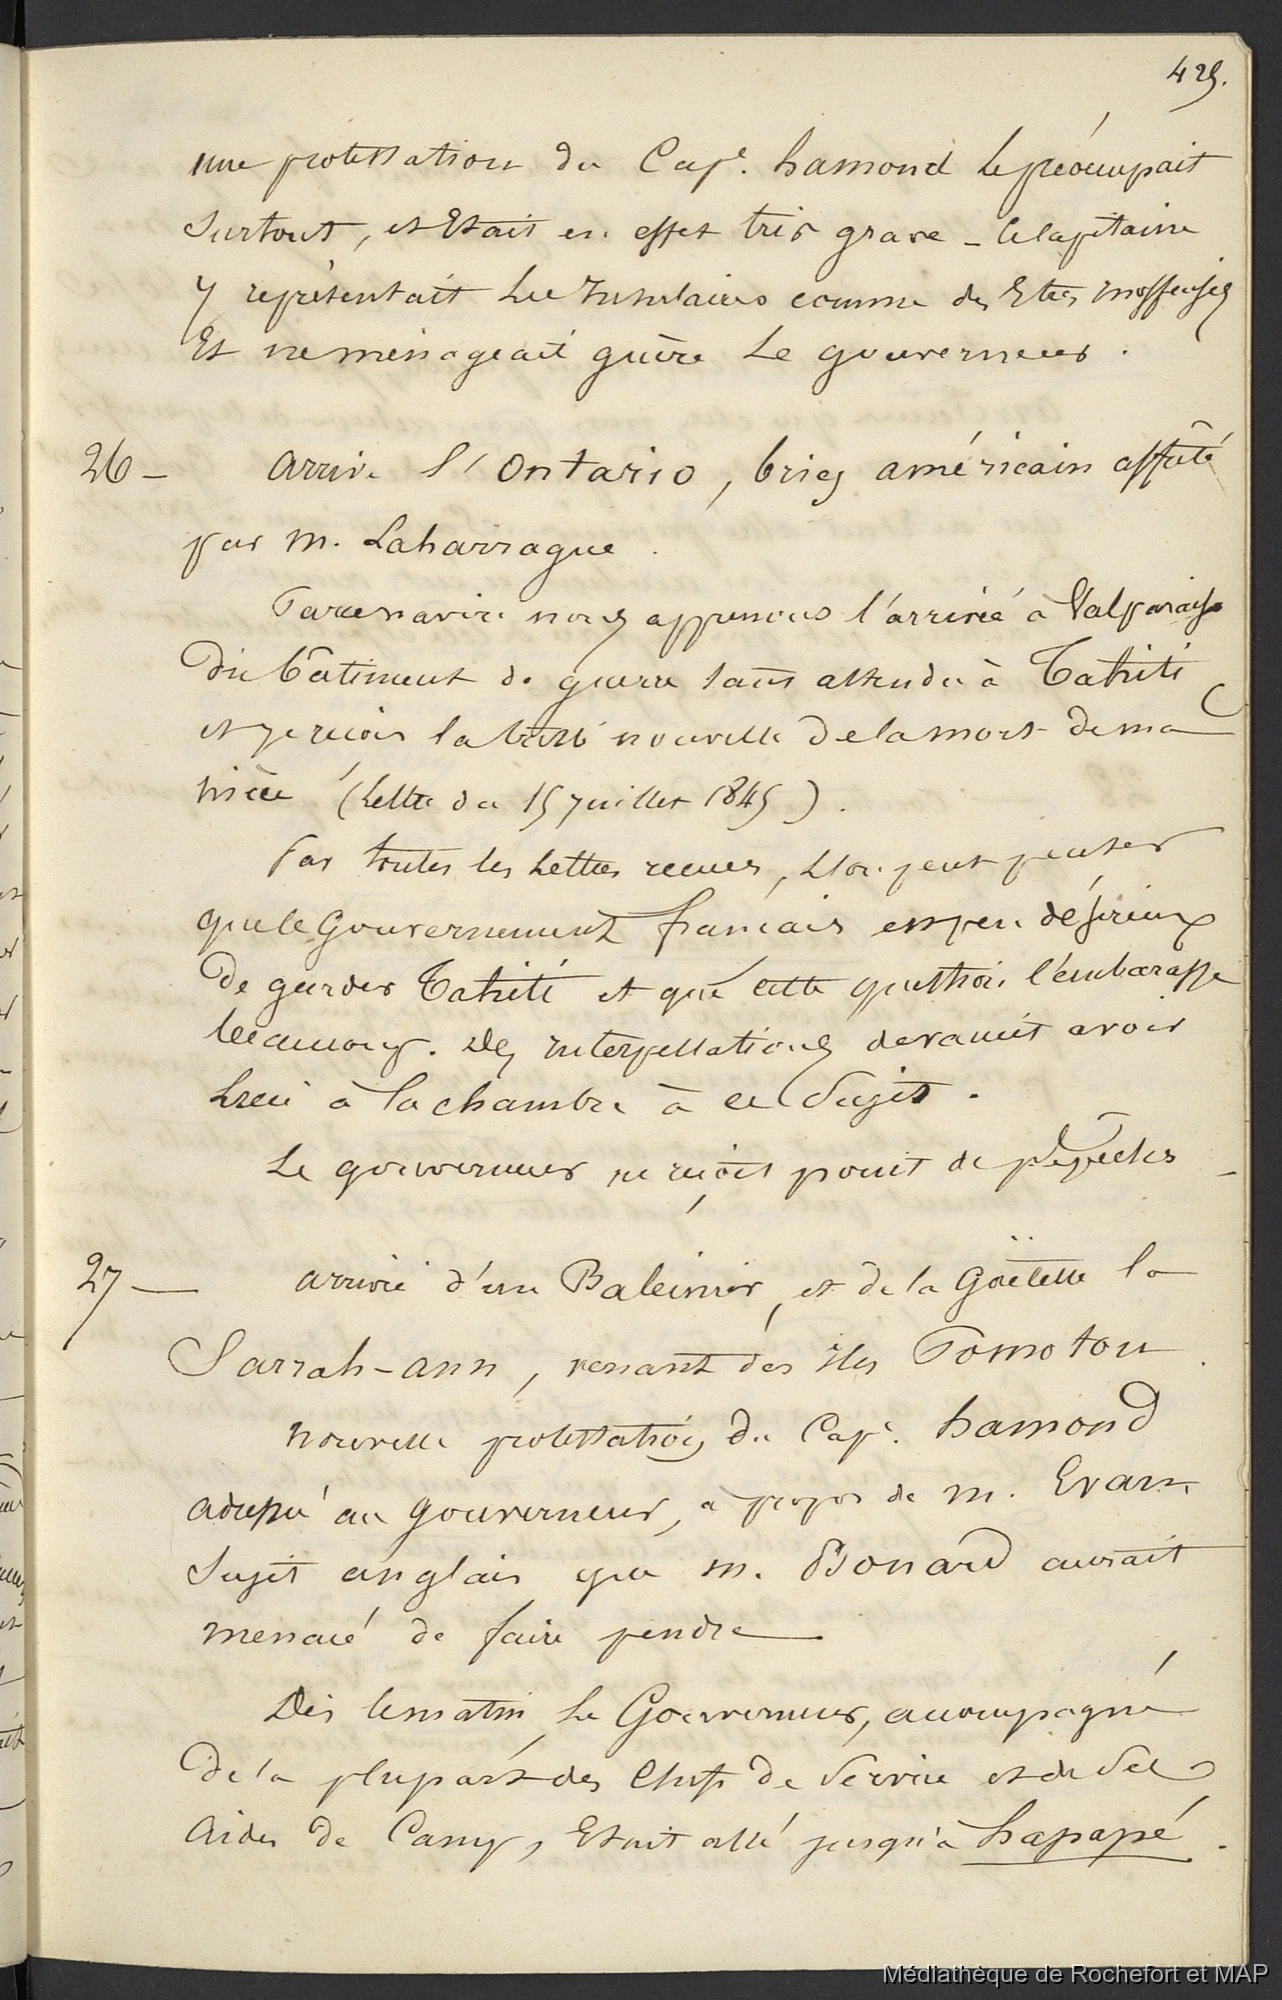 425.
une protestation du Cape. hamond le préocupait
surtout, et Etait en effet très grave - le capitaine
y représentait les insulaires comme des Etres inoffensifs
Et ne ménageait guère le gouverneur.
26 - arrive l'Ontario, brig américain affrêté
par m. Laharrague.
Par ce navire nous apprenons l'arrivée à Valparaiso
du bâtiment de guerre tant attendu à Tahiti
et je reçois la triste nouvelle de la mort de ma
nièce (Lettre du 15 juillet 1845).
Par toutes les lettres reçues, l'on peut penser
que le Gouvernement français est peu désireux
de garder Tahiti et que cette question l'embarasse
beaucoup. Des interpellations devaient avoir
lieu à la chambre à ce sujet.
Le gouverneur ne reçoit point de dépêches -
27 - arrivée d'un Baleinier, et de la Goëlette la
Sarrah-ann, venant des îles Pomotou.
nouvelle protestation du Cape. hamond
adressé au gouverneur, à propos de m. Evans
sujet anglais que m. Bonard aurait
menacé de faire pendre
Dès le matin le Gouverneur, accompagné
de la plupart des Chefs de Service et de Ses
Aides de Camp, Etait allé jusqu'à hapapé.
Médiathèque de Rochefort et MAP